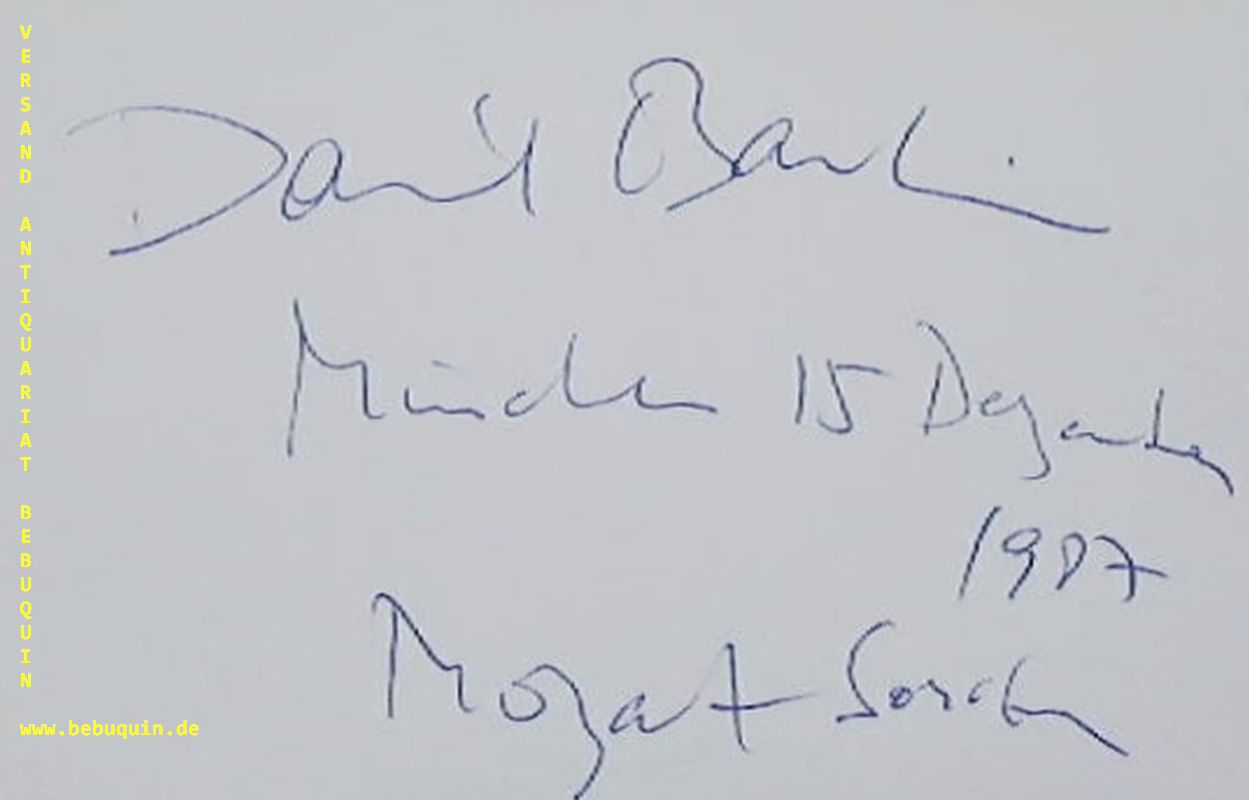 VERSAND ANTIQUARIAT BEBUQUIN
www.bebuquin.de
Daniel
München 15 Dezember
1987
Mozart